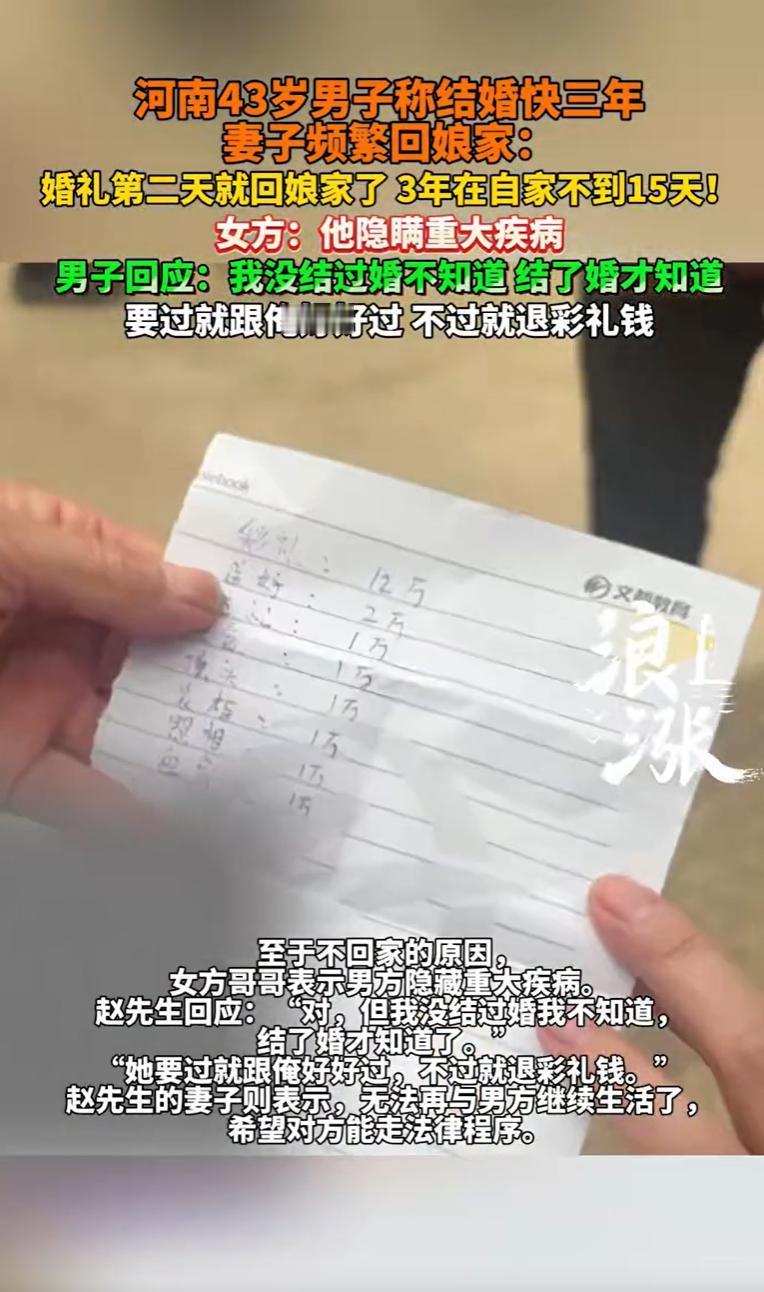 河南43岁男子称结婚快三年
妻子频繁回娘家：
婚礼第二天就回娘家了 3年在自家不到15天！
女方：他隐瞒重大疾病
男子回应：我没结过婚不知道 结了婚才知道
要过就跟俺好好过 不过就退彩礼钱
ebook
彩礼： 12万
文都教育
2万
1万
1万
1万
1万
照相 1万
1万
浪上涨
至于不回家的原因，
女方哥哥表示男方隐藏重大疾病。
赵先生回应：“对，但我没结过婚我不知道，
结了婚才知道了。”
“她要过就跟俺好好过，不过就退彩礼钱。”
赵先生的妻子则表示，无法再与男方继续生活了，
希望对方能走法律程序。